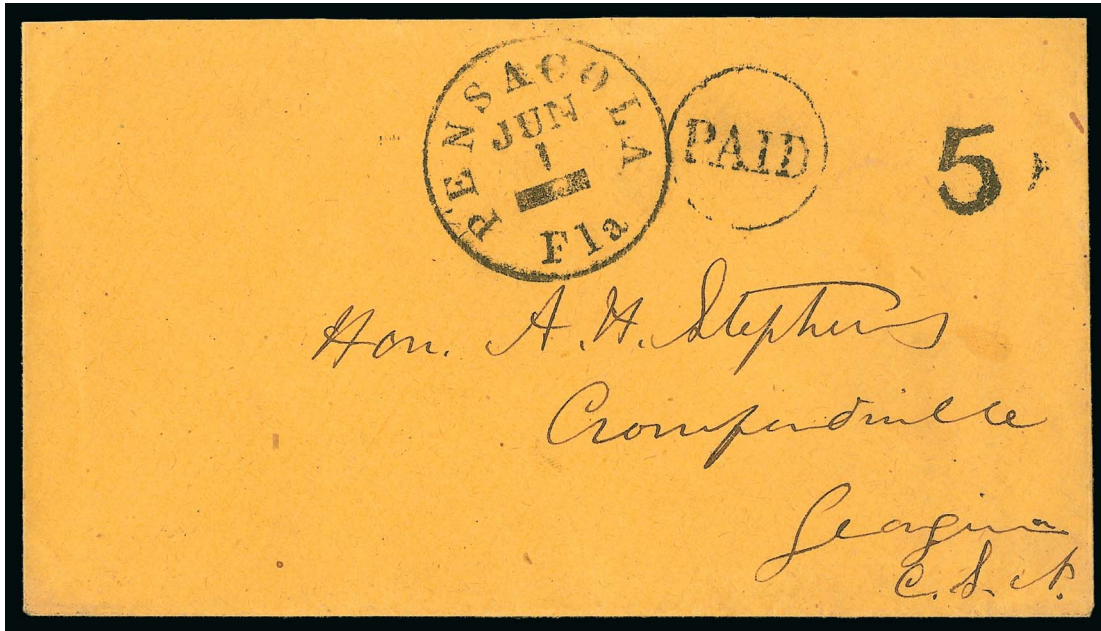 PENSACOLA
JUN
1
Fla
PAID
5
Hon. A. H. Stephens
Crawfordville
Georgia
C. S. A.